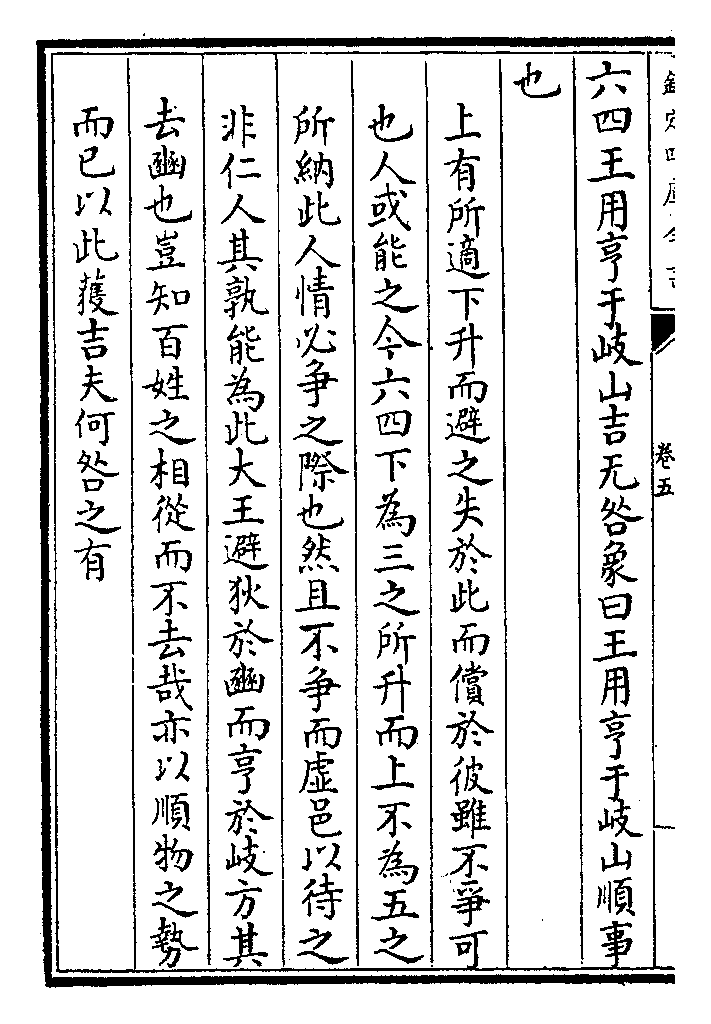 欽定四庫全書
卷五
六四王用亨于岐山吉无咎象曰王用亨于岐山順事
也
上有所適下升而避之失於此而償於彼雖不爭可
也人或能之今六四下為三之所升而上不為五之
所納此人情必争之際也然且不争而虛邑以待之
非仁人其孰能為此大王避狄於豳而亨於岐方其
去豳也豈知百姓之相從而不去哉亦以順物之勢
而已以此獲吉夫何咎之有